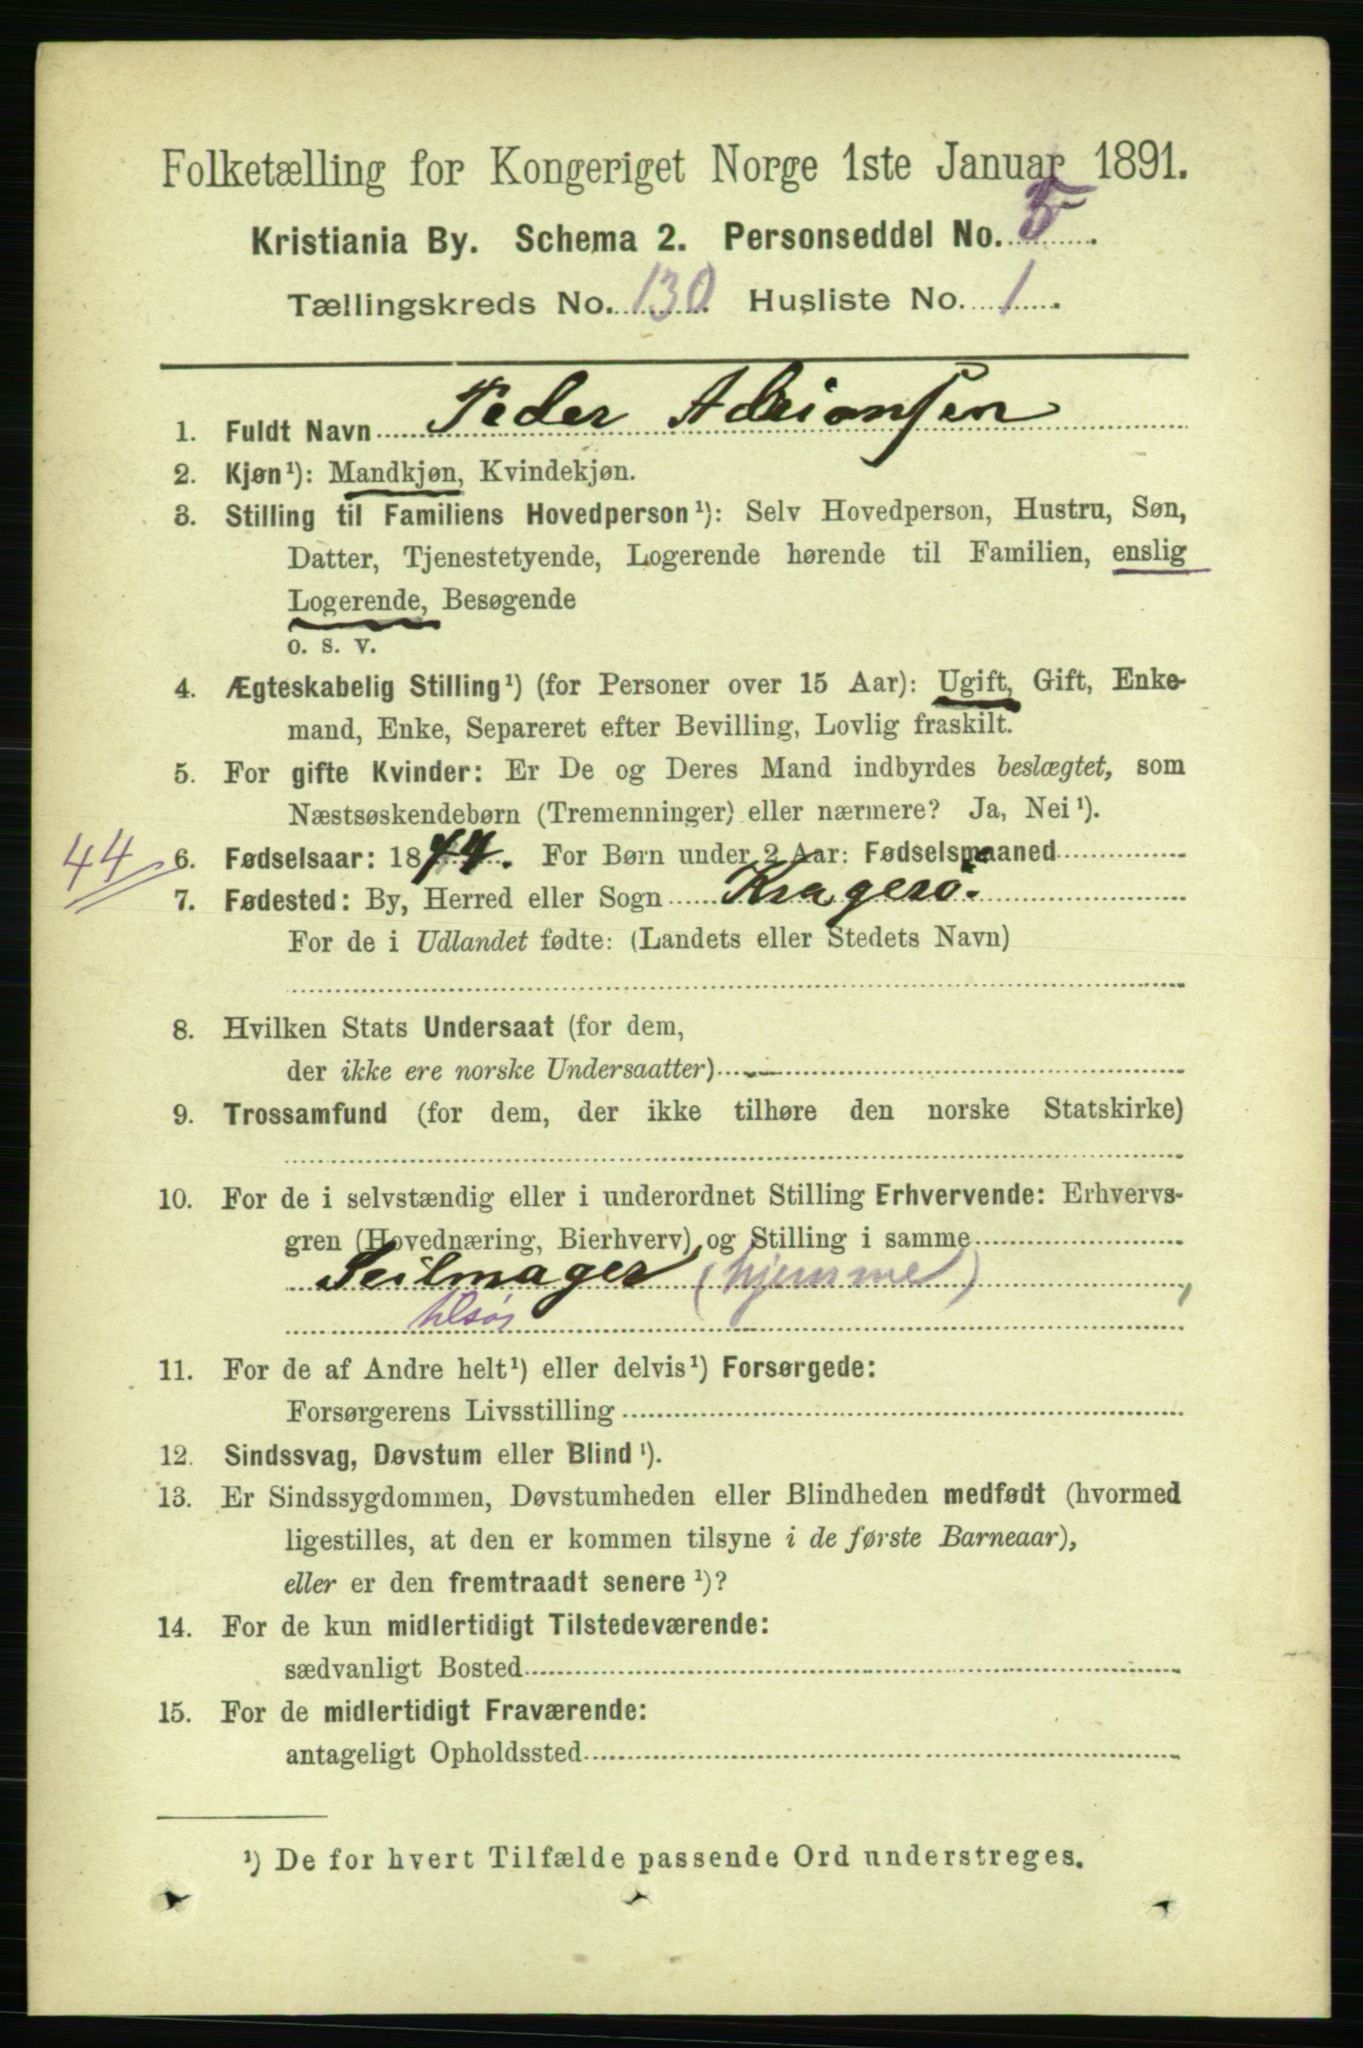 Folketælling for Kongeriget Norge 1ste Januar 1891.
Kristiania By. Schema 2. Personseddel No. 5.
Tællingskreds No. 130. Husliste No. 1.
1. Fuldt Navn Peder Adriansen
2. Kjøn¹): Mandkjøn, Kvindekjøn.
3. Stilling til Familiens Hovedperson¹): Selv Hovedperson, Hustru, Søn,
Datter, Tjenestetyende, Logerende hørende til Familien, enslig
Logerende, Besøgende
o. s. v.
4. Ægteskabelig Stilling¹) (for Personer over 15 Aar): Ugift, Gift, Enke-
mand, Enke, Separeret efter Bevilling, Lovlig fraskilt.
5. For gifte Kvinder: Er De og Deres Mand indbyrdes beslægtet, som
Næstsøskendebørn (Tremenninger) eller nærmere? Ja, Nei¹).
44 6. Fødselsaar: 1844. For Børn under 2 Aar: Fødselsmaaned
7. Fødested: By, Herred eller Sogn Kragerö.
For de i Udlandet fødte: (Landets eller Stedets Navn)
8. Hvilken Stats Undersaat (for dem,
der ikke ere norske Undersaatter)
9. Trossamfund (for dem, der ikke tilhøre den norske Statskirke)
10. For de i selvstændig eller i underordnet Stilling Erhvervende: Erhvervs-
gren (Hovednæring, Bierhverv) og Stilling i samme
Seilmager (hjemme)
tilsøs
11. For de af Andre helt¹) eller delvis¹) Forsørgede:
Forsørgerens Livsstilling
12. Sindssvag, Døvstum eller Blind¹).
13. Er Sindssygdommen, Døvstumheden eller Blindheden medfødt (hvormed
ligestilles, at den er kommen tilsyne i de første Barneaar),
eller er den fremtraadt senere¹)?
14. For de kun midlertidigt Tilstedeværende:
sædvanligt Bosted
15. For de midlertidigt Fraværende:
antageligt Opholdssted
¹) De for hvert Tilfælde passende Ord understreges.